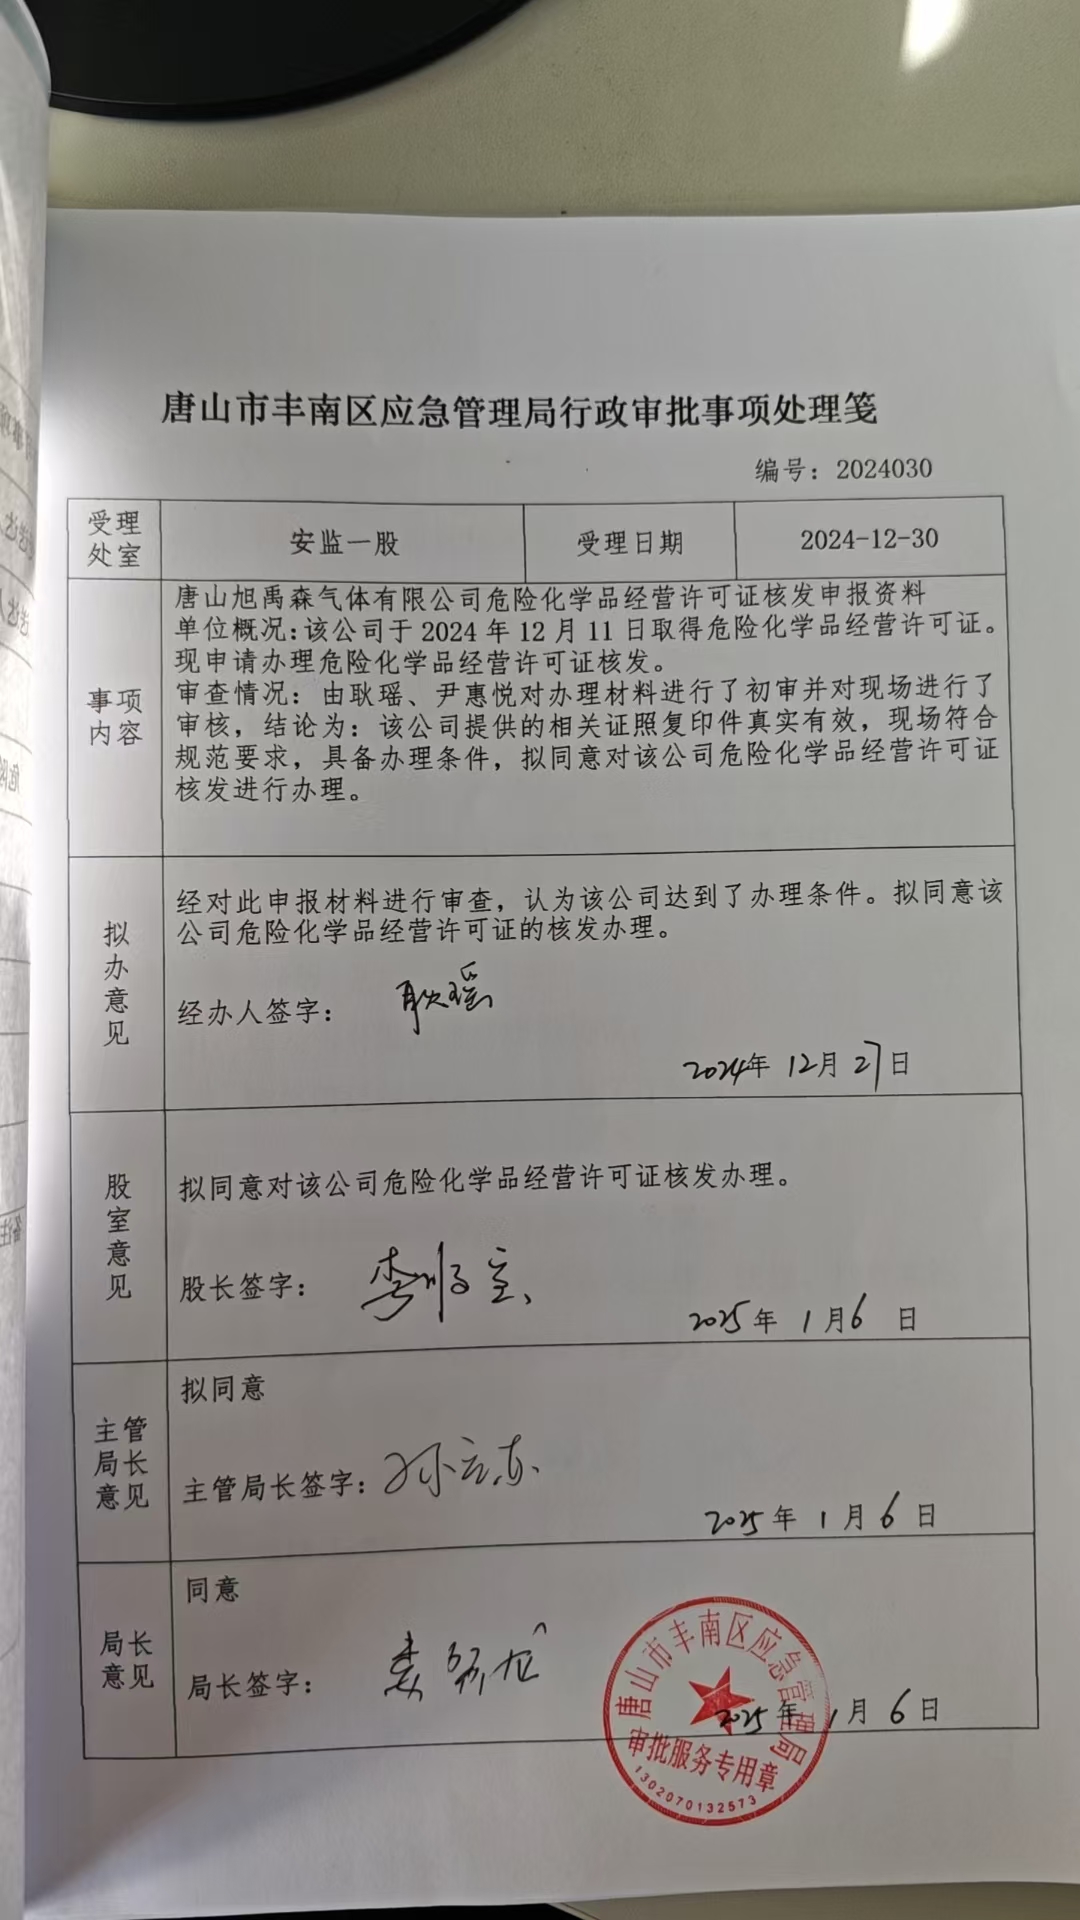 唐山市丰南区应急管理局行政审批事项处理笺
编号：2024030
受理处室
安监一股
受理日期
2024-12-30
事项内容
唐山旭禹森气体有限公司危险化学品经营许可证核发申报资料
单位概况：该公司于 2024 年 12 月 11 日取得危险化学品经营许可证。
现申请办理危险化学品经营许可证核发。
审查情况：由耿瑶、尹惠悦对办理材料进行了初审并对现场进行了
审核，结论为：该公司提供的相关证照复印件真实有效，现场符合
规范要求，具备办理条件，拟同意对该公司危险化学品经营许可证
核发进行办理。
拟办意见
经对此申报材料进行审查，认为该公司达到了办理条件。拟同意该
公司危险化学品经营许可证的核发办理。
经办人签字： 耿瑶
2024年 12月 27日
股室意见
拟同意对该公司危险化学品经营许可证核发办理。
股长签字：
2025年 1月6日
主管局长意见
拟同意
主管局长签字：
2025年 1月6日
局长意见
同意
局长签字：
2025年 1月6日
唐山市丰南区应急管理局
审批服务专用章
1302070132573